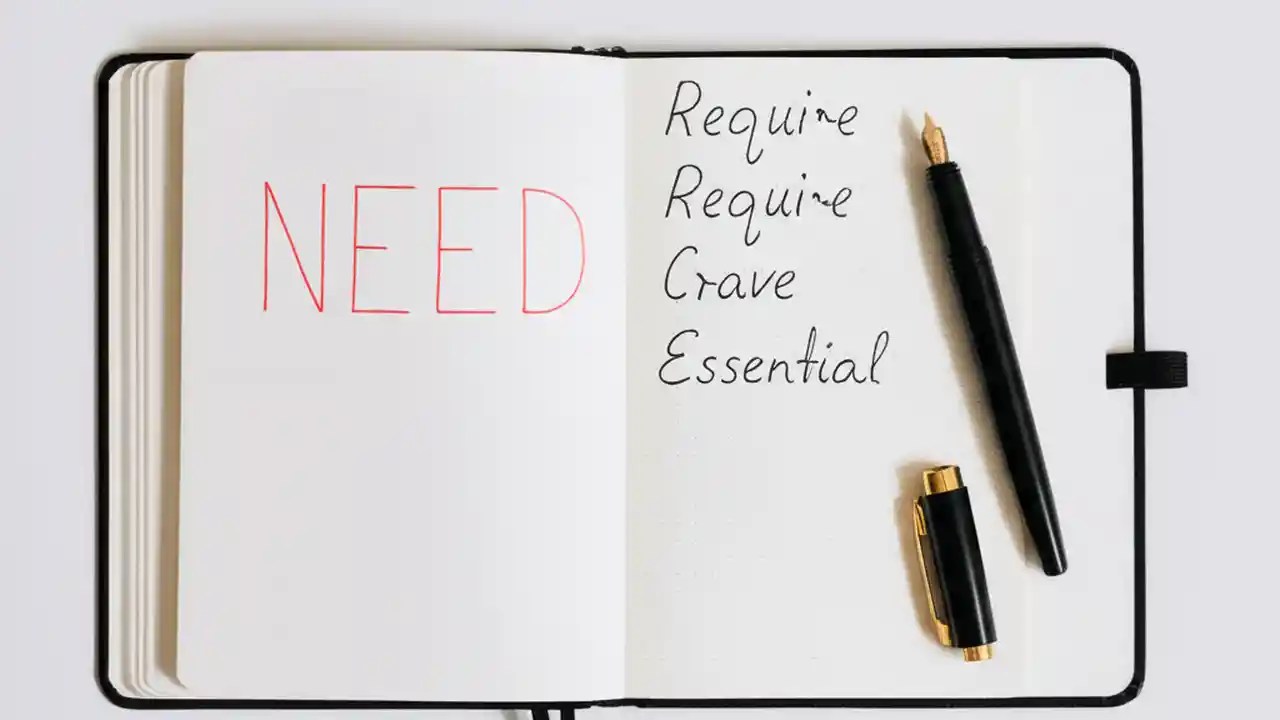 NEED
Require
Require
Crave
Essential